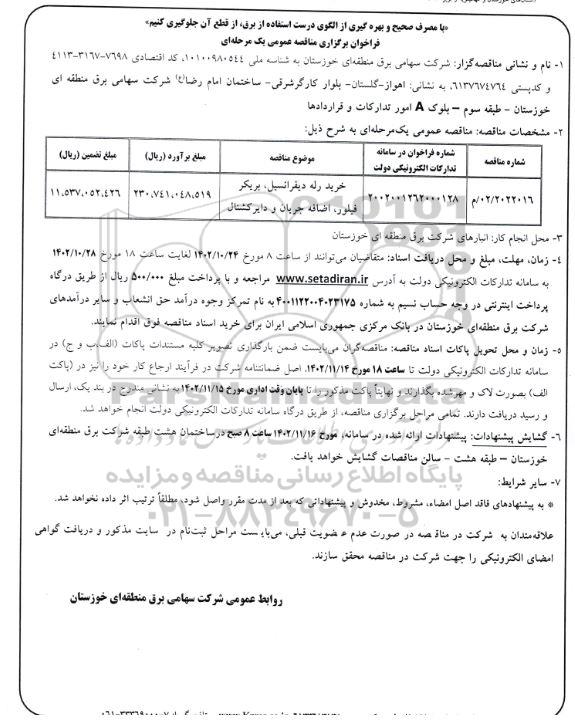 «با مصرف صحیح و بهره گیری از الگوی درست استفاده از برق، از قطع آن جلوگیری کنیم»
فراخوان برگزاری مناقصه عمومی یک مرحله‌ای
۱- نام و نشانی مناقصه‌گزار: شرکت سهامی برق منطقه‌ای خوزستان به شناسه ملی ۱۰۱۰۰۹۸۰۵۴۴، کد اقتصادی ۷۶۹۸-۳۱۶۷-۴۱۱۳
و کدپستی ۶۱۳۷۶۷۴۷۶۴، به نشانی: اهواز-گلستان- بلوار کارگرشرقی- ساختمان امام رضا(ع) شرکت سهامی برق منطقه ای
خوزستان - طبقه سوم – بلوک A امور تدارکات و قراردادها
۲- مشخصات مناقصه: مناقصه عمومی یک‌مرحله‌ای به شرح ذیل:
شماره مناقصه | شماره فراخوان در سامانه تدارکات الکترونیکی دولت | موضوع مناقصه | مبلغ برآورد (ریال) | مبلغ تضمین (ریال)
۰۲/۲۰۲۲۰۱۶/م | ۲۰۰۲۰۰۱۲۶۲۰۰۰۱۲۸ | خرید رله دیفرانسیل، بریکر فیلور، اضافه جریان و دایرکشنال | ۲۳۰,۷۴۱,۰۴۸,۵۱۹ | ۱۱,۵۳۷,۰۵۲,۴۲۶
۳- محل انجام کار: انبارهای شرکت برق منطقه ای خوزستان
۴- زمان، مهلت، مبلغ و محل دریافت اسناد: متقاضیان می‌توانند از ساعت ۸ مورخ ۱۴۰۲/۱۰/۲۴ لغایت ساعت ۱۸ مورخ ۱۴۰۲/۱۰/۲۸
به سامانه تدارکات الکترونیکی دولت به آدرس www.setadiran.ir مراجعه و با پرداخت مبلغ ۵۰۰/۰۰۰ ریال از طریق درگاه
پرداخت اینترنتی در وجه حساب نسیم به شماره ۴۰۰۱۱۲۲۰۰۴۰۲۳۱۷۵ به نام تمرکز وجوه درآمد حق انشعاب و سایر درآمدهای
شرکت برق منطقه‌ای خوزستان در بانک مرکزی جمهوری اسلامی ایران برای خرید اسناد مناقصه فوق اقدام نمایند.
۵- زمان و محل تحویل پاکات اسناد مناقصه: مناقصه‌گران می‌بایست ضمن بارگذاری تصویر کلیه مستندات پاکات (الف،ب و ج) در
سامانه تدارکات الکترونیکی دولت تا ساعت ۱۸ مورخ ۱۴۰۲/۱۱/۱۴، اصل ضمانتنامه شرکت در فرآیند ارجاع کار خود را نیز در (پاکت
الف) بصورت لاک و مهرشده بگذارند و نهایتاً پاکت مذکور را تا پایان وقت اداری مورخ ۱۴۰۲/۱۱/۱۵ به نشانی مندرج در بند یک، ارسال
و رسید دریافت دارند. تمامی مراحل برگزاری مناقصه، از طریق درگاه سامانه تدارکات الکترونیکی دولت انجام خواهد شد.
۶- گشایش پیشنهادات: پیشنهادات ارائه شده در سامانه، مورخ ۱۴۰۲/۱۱/۱۶ ساعت ۸ صبح در ساختمان هشت طبقه شرکت برق منطقه‌ای
خوزستان – طبقه هشت - سالن مناقصات گشایش خواهد یافت.
۷- سایر شرایط:
* به پیشنهادهای فاقد اصل امضاء، مشروط، مخدوش و پیشنهاداتی که بعد از مدت مقرر واصل شود، مطلقاً ترتیب اثر داده نخواهد شد.
علاقه‌مندان به شرکت در مناقصه در صورت عدم عضویت قبلی، می‌بایست مراحل ثبت‌نام در سایت مذکور و دریافت گواهی
امضای الکترونیکی را جهت شرکت در مناقصه محقق سازند.
روابط عمومی شرکت سهامی برق منطقه‌ای خوزستان
پایگاه اطلاع رسانی مناقصه و مزایده
۰۲۱-۸۸۳۴۹۶۷۰-۵